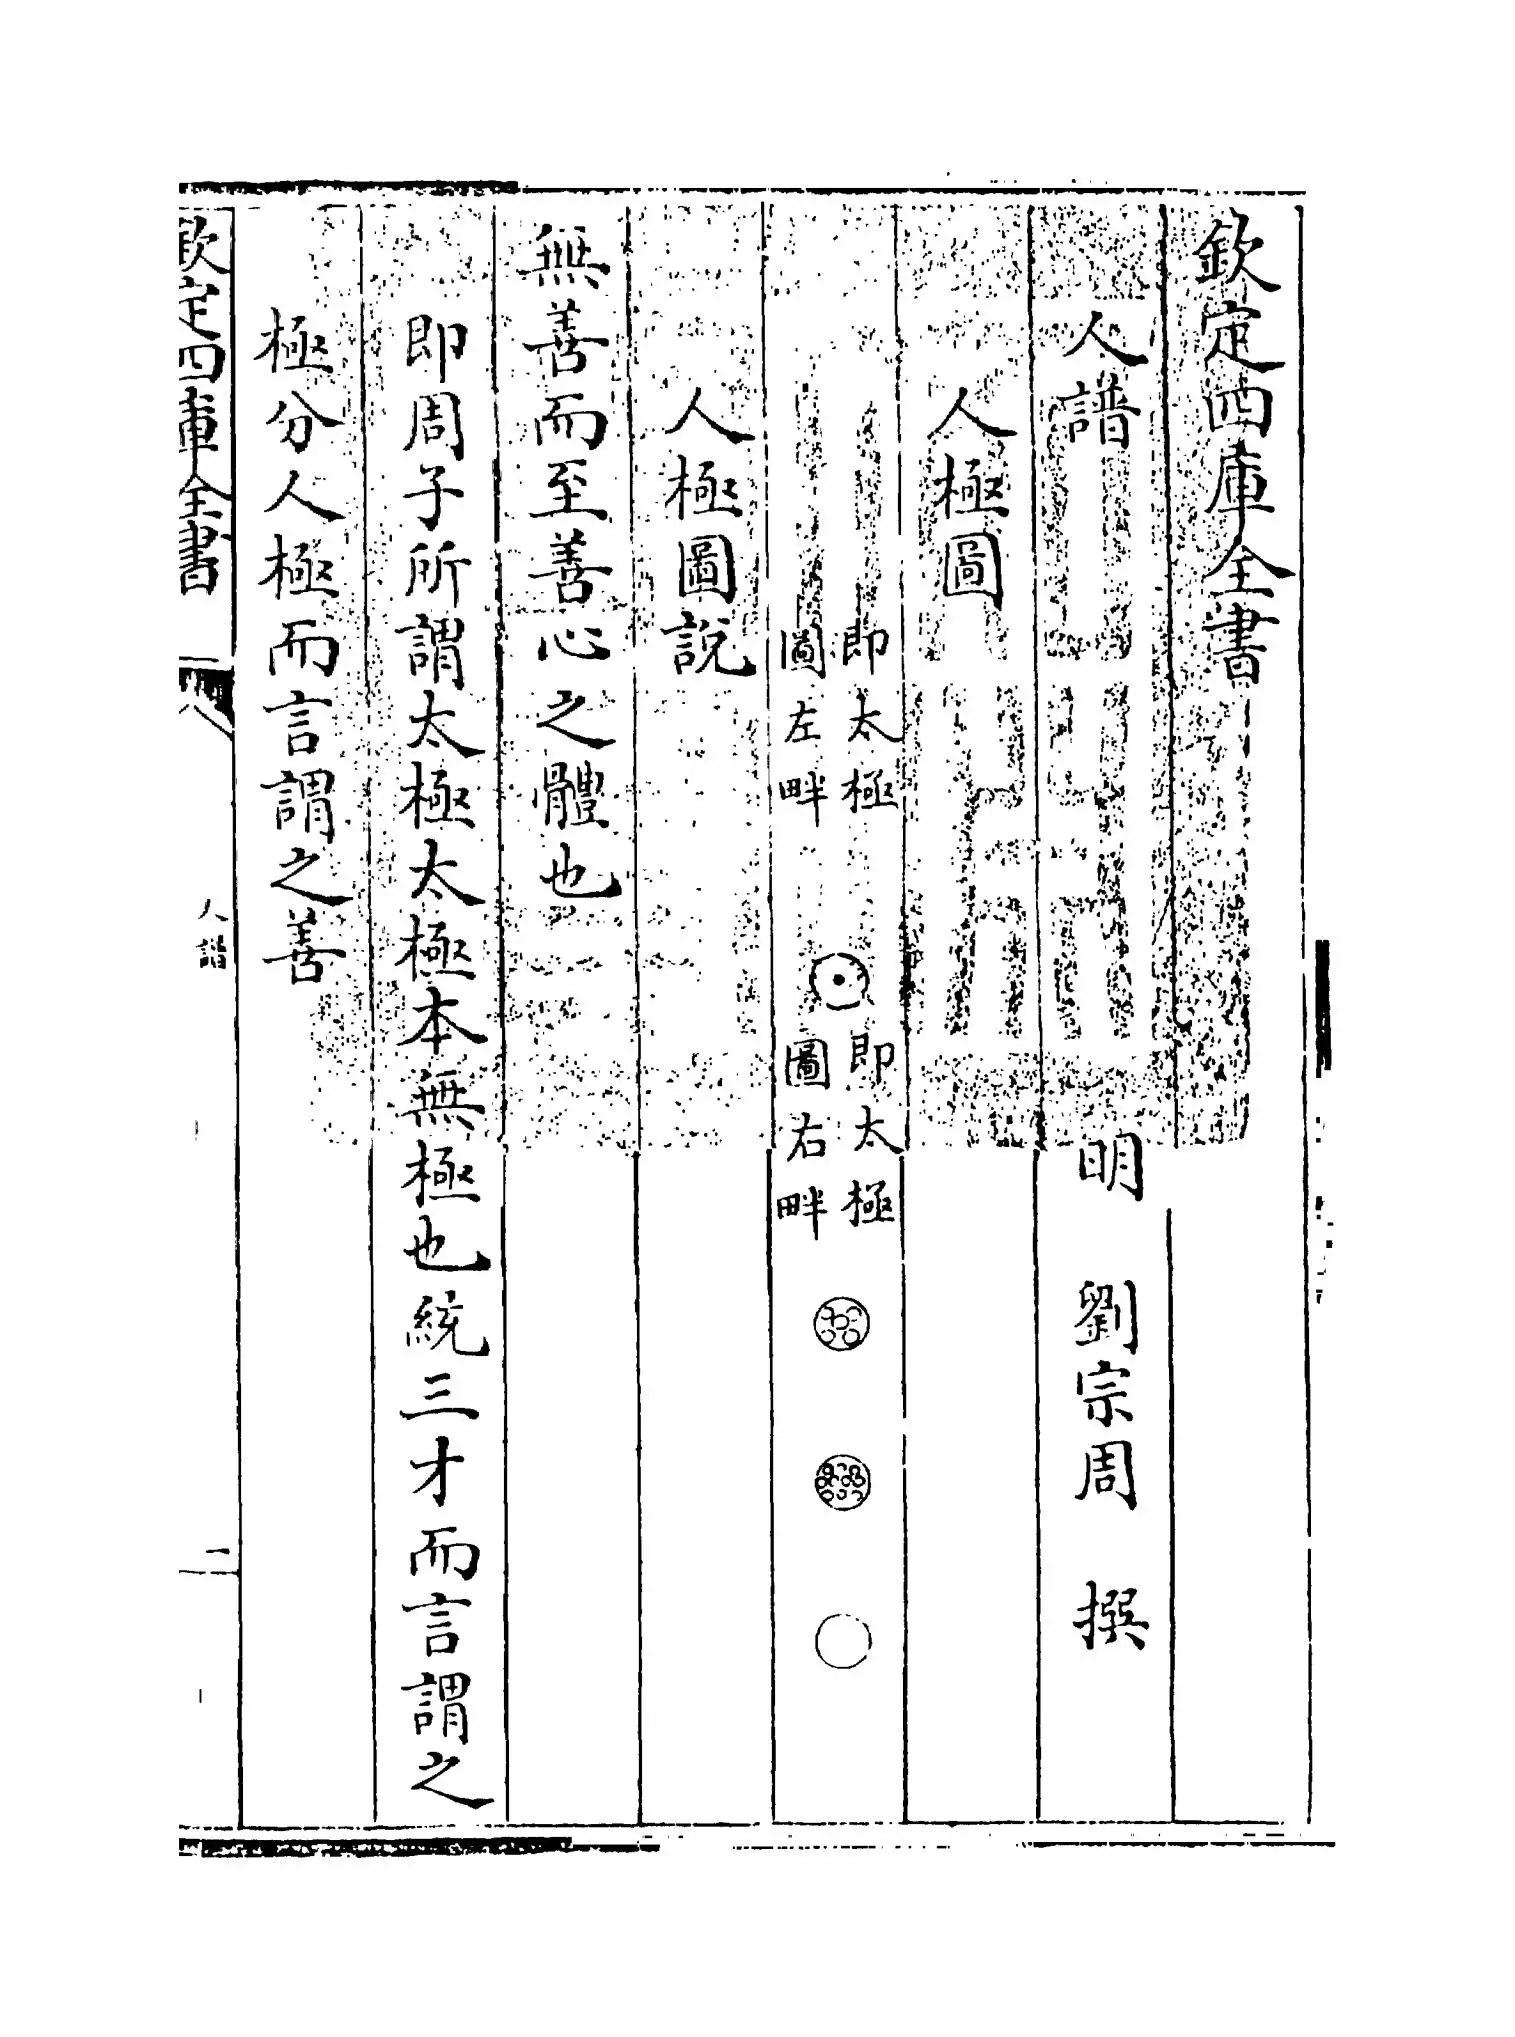 欽定四庫全書
人譜
明 劉宗周 撰
人極圖
即太極
圖左畔
即太極
圖右畔
人極圖說
無善而至善心之體也
即周子所謂太極太極本無極也統三才而言謂之
極分人極而言謂之善
欽定四庫全書
人譜
一